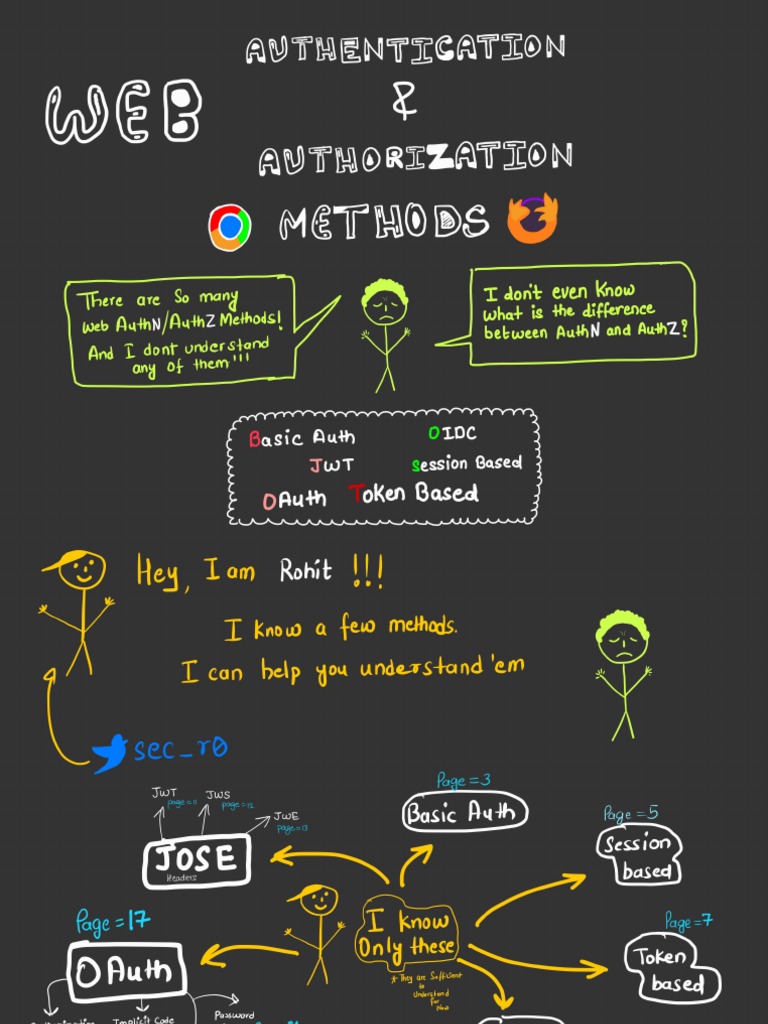 WEB
AUTHENTICATION
&
AUTHORIZATION
METHODS
There are So many
web AuthN/AuthZ Methods!
And I dont understand
any of them'!!
I don't even know
what is the difference
between AuthN and AuthZ?
Basic Auth
OIDC
JWT
Session Based
OAuth
Token Based
Hey, I am Rohit !!!
I know a few methods.
I can help you understand 'em
sec_r0
Page = 3
Basic Auth
JWT
page = 11
JWS
page = 12
JWE
page = 13
JOSE
Headers
Page = 5
Session
based
I know
Only these
* They are Sufficient
to
Understand
For
Now
Page = 17
OAuth
Page = 7
Token
based
Implicit Code
Password